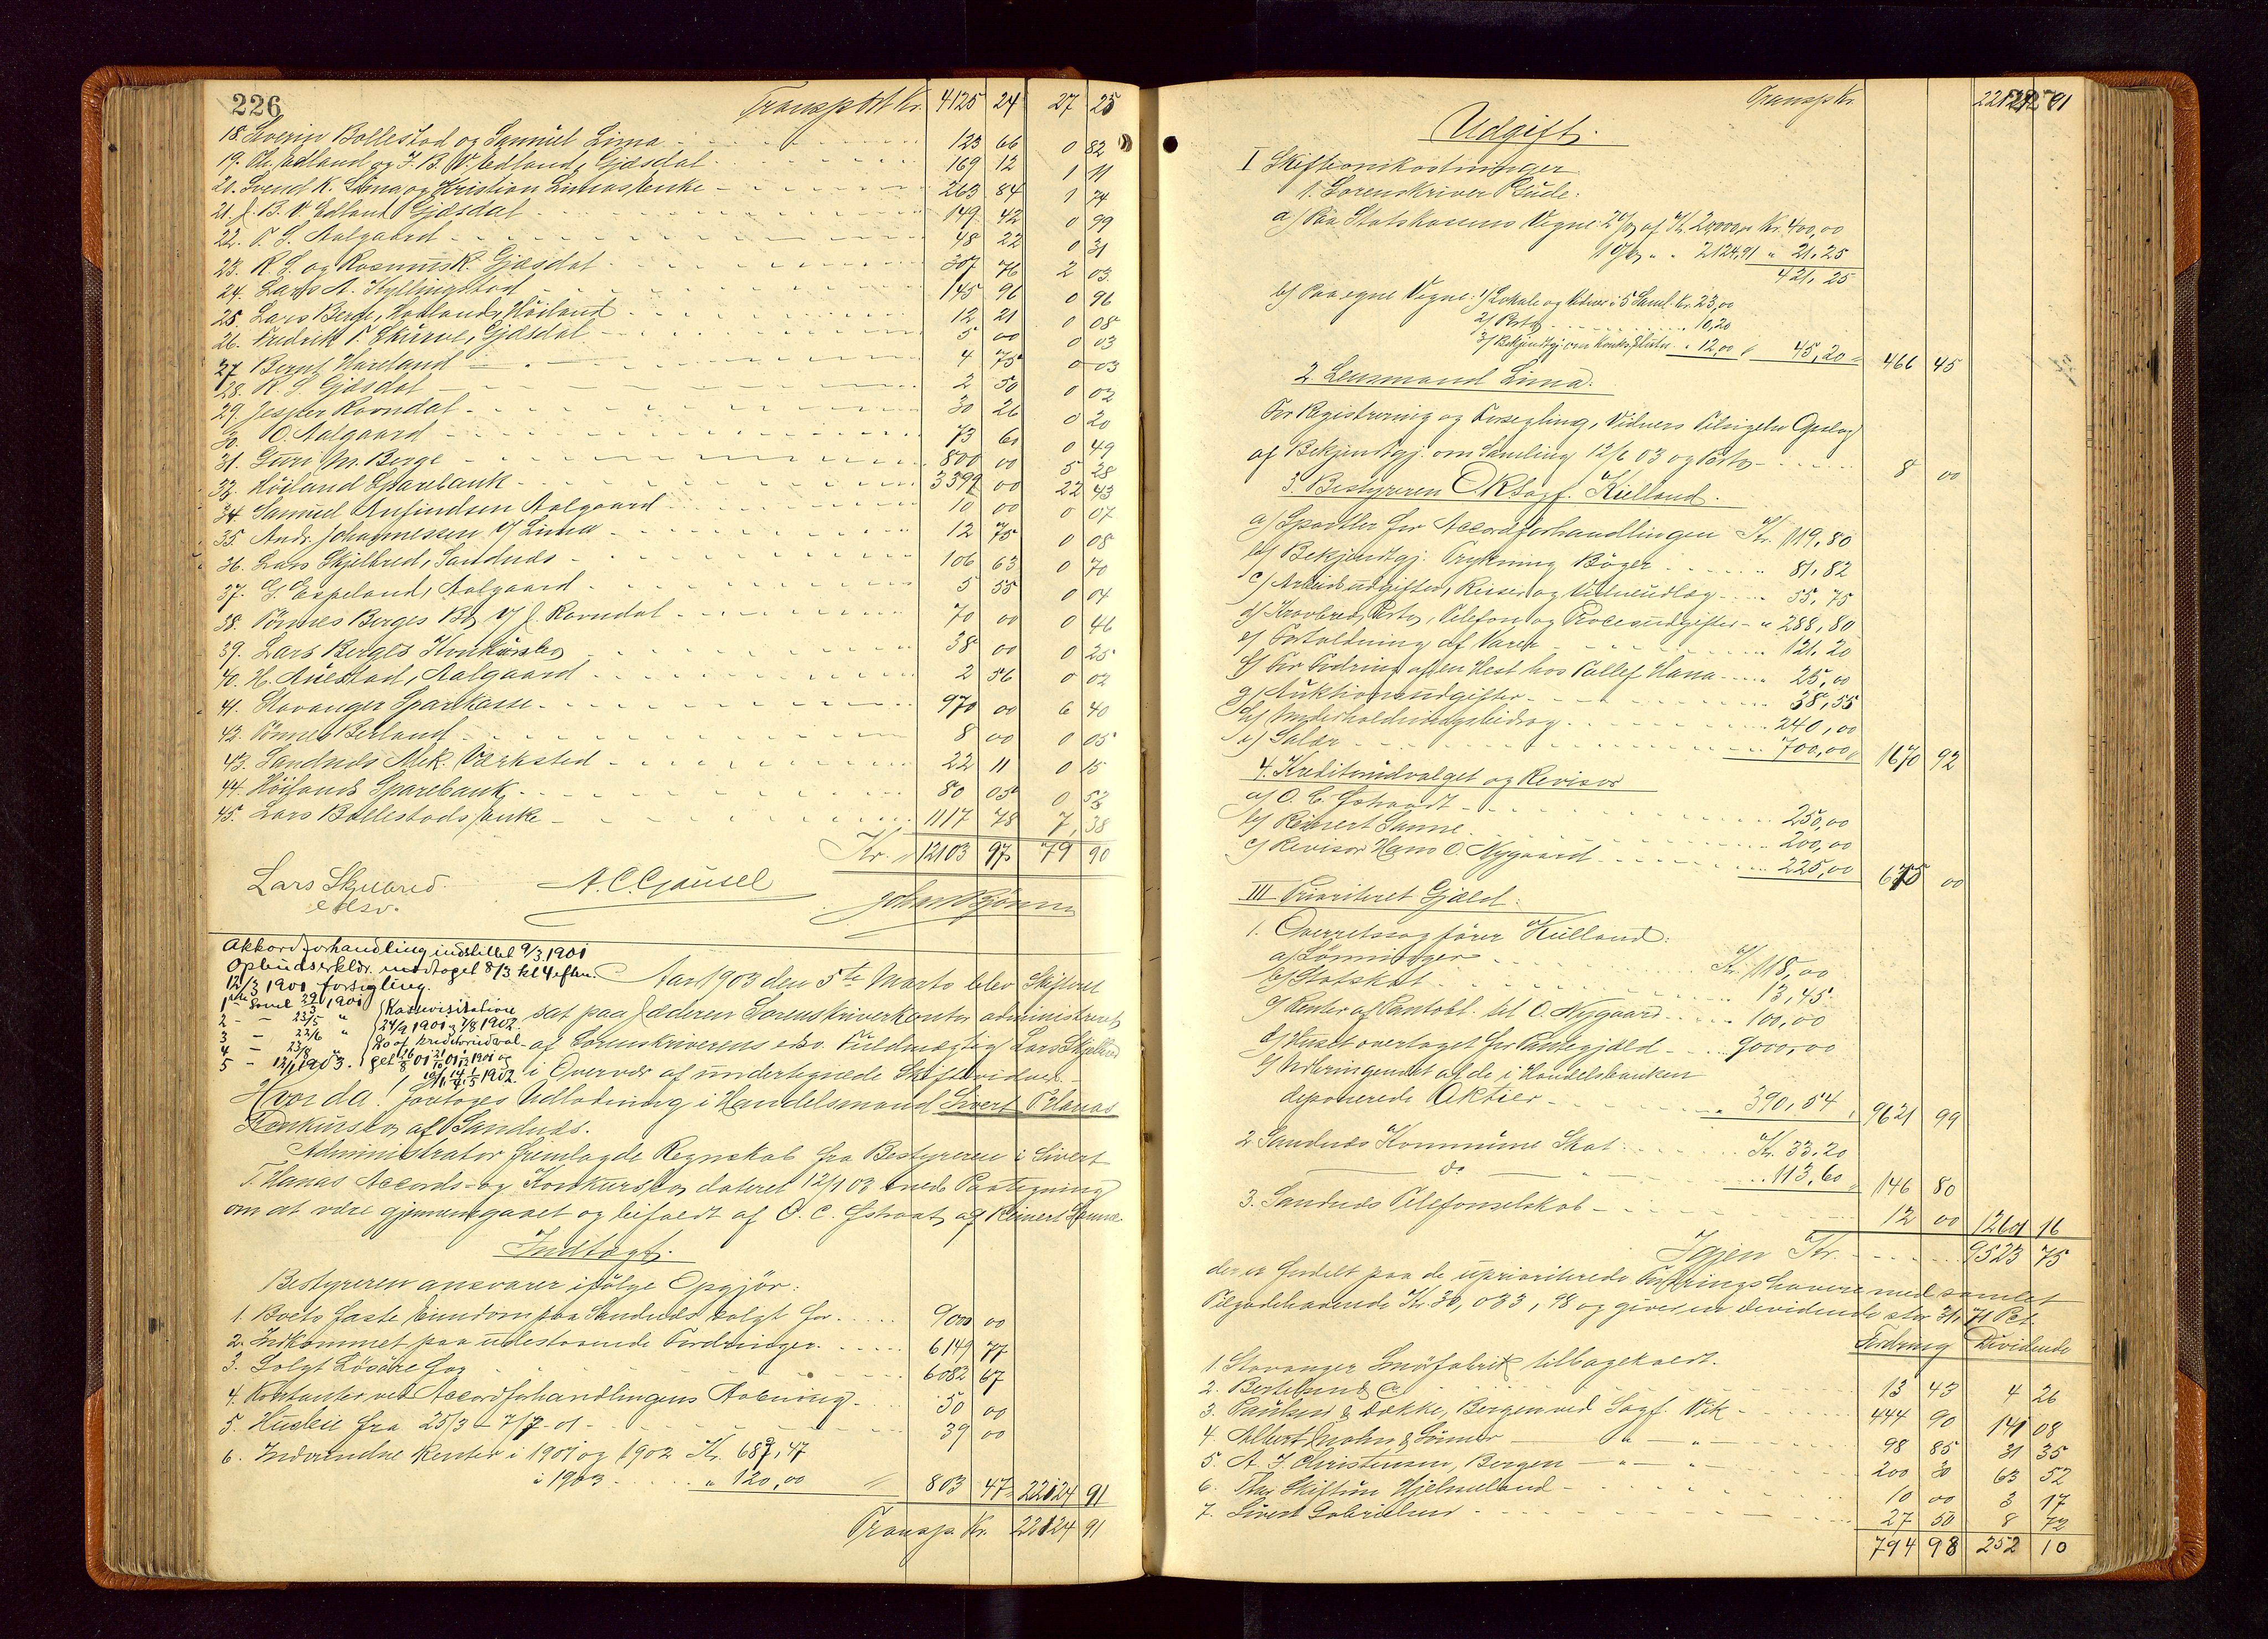 226
Transport Kr. 4125 24 27 25
18. Severin Bollestad og Samuel Lima - 123 66 0 82
19. Chr. Edland og J. B. V. Edland, Gjæsdal 169 12 1 11
20. Svend K. Limas og Kristian Limas Enke - 263 84 1 74
21. J. B. V. Edland Gjæsdal 149 42 0 99
22. T. S. Aalgaard 48 22 0 31
23. R. S. og Rasmus K. Gjæsdal 307 76 2 03
24. Lars A. Kyllingstad 145 96 0 96
25. Lars Berge, Høiland 12 21 0 08
26. Fredrik T. Skurve, Gjæsdal 5 00 0 03
27 Bernt Haveland 4 75 0 03
28. R. S. Gjæsdal 2 50 0 02
29. Jesper Ravndal 30 26 0 20
30. O. Aalgaard 73 60 0 49
31. Guri M. Berge 800 00 5 28
32. Høiland Sparebank 3399 00 22 43
34. Samuel Anfindsen Aalgaard 10 00 0 07
35. Andr. Johannessen v/ Lima 12 75 0 08
36. Lars Skjelbred, Sandnæs 106 63 0 70
37. G. Espeland, Aalgaard 5 55 0 04
38. Tønnes Berges Bo v/ J. Ravndal 70 00 0 46
39. Lars Berges Konkursbo 38 00 0 25
40. H. Auestad, Aalgaard 2 56 0 02
41. Stavanger Sparekasse 970 00 6 40
42. Tønnes Berland 8 00 0 05
43. Sandnæs Mek. Værksted 22 11 0 15
44. Høilands Sparebank 80 05 0 53
45. Lars Bollestads Enke 1117 78 7,38
Kr. 12103 97 79 90
Lars Skjelbred A. C. Gausel
edsv. Johan Bjønn
Akkordforhandling indstillet 9/3 1901
Opbudserklær. modtaget 8/3 kl 4 eftm.
12/3 1901 forsegling.
1ste Saml 29/3 1901
2 - - 23/5 "
3 - 22/6 "
4 - 23/8 "
5 - 12/1 1903.
Kassevisitation
24/9 1901 & 7/8 1902.
Aar 1903 den 5te Marts blev Skifteret
sat paa Jæderen Sorenskriverkontor administreret
af Sorenskriverens edsv. Fuldmægtig Lars Skjelbred
i Overvær af undertegnede Skiftevidner.
Hvorda! foretoges Udlodning i Handelsmand Sivert T. Hanas
Konkursbo af Sandnæs.
Administrator fremlagde Regnskab fra Bestyreren i Sivert
T. Hanas Accords- og Konkursbo dateret 12/1 03 med Paategning
om at være gjennemgaaet og bifaldt af O. C. Gstraat og Reinert Sanne.
Indtægt.
Bestyreren ansvarer ifølge Opgjør:
1. Boets faste Eiendom paa Sandnæs solgt for 9000 00
2. Indkommet paa udestaaende Fordringer 6149 77
3. Solgt Løsøre for 6082 67
4. Kontanter ved Accordforhandlingens Aabning 50 00
5. Husleie fra 25/3 - 7/7 - 01 - 39 00
6. Indvundne Renter i 1901 og 1902 Kr. 683,47
i 1903 " 120,00 803 47 22124 91
Transp Kr. 22124 91
Transp Kr. 22124 91
Udgift.
I Skifteomkostninger
1. Sorenskriver Gude:
a) Paa Statskassens Vegne: 2% af Kr. 20,000,00 Kr. 400,00
1% " " 2124,91 " 21,25
421,25
b) Paa egne Vegne: 1) Lokale og Vidner i 5 Saml. Kr. 23,00
2) Porto 10,20
3) Bekjendtgj. om Konks. Slutn. " 12,00 45,20 466 45
2 Lensmand Lima.
For Registrering og Forsegling, Vidners Tilsigelse Opslag
af Bekjendtgj. om Samling 12/6 03 og Porto 8 00
3. Bestyreren O.R.Sagf. Kielland.
a) Sportler for Accordforhandlingen Kr. 119,80
b) Bekjendtgj. Trykning Bøger 81,82
c) Arbeidsudgifter, Reiser og Vidneudlæg 55,75
d) Kravbrev, Porto, Telefon og Procesudgifter " 288,80
e) Fortoldning af Varer 121,20
f) For Fodring af en Hest hos Tollef Hana 25,00
g) Auktionsudgifter 38,55
h) Underholdningsbidrag 240,00
i) Salær 700,00 1670 92
4. Kreditudvalget og Revisor
a) O. C. Gstraadt 250,00
b) Reinert Sanne 200,00
c) Revisor Hans O. Nygaard 225,00 675 00
III Prioriteret Gjæld:
1. Overretssagfører Kielland:
a) Lønninger Kr. 118,00
b) Statskat 13,45
c) Renter af Pantobl. til O. Nygaard 100,00
d) Huset overtaget for Pantegjæld 9000,00
deponerede Aktier 390,54 9621 99
2 Sandnæs Kommune Skat: Kr. 33,20
do 113,60 146 80
3. Sandnæs Telefonselskab 12 00 12601 16
Igjen Kr. 9523 75
der er fordelt paa de uprioriterede Fordringshavere med samlet
Tilgodehavende Kr. 30,033,98 og giver en Dividende stor 31,71 Pct.
Fordring Dividende
1. Stavanger Smørfabrik tilbagekaldt.
2. Bertelsen & Co 13 43 4 26
3. Paulsen & Dekke, Bergen ved Sagf. Vik 444 90 141 08
4. Albert Mohn & Sønner " " 98 85 31 35
5. A. J. Christensen, Bergen " " 200 30 63 52
6. Hjelmeland 10 00 3 17
7. Sivert Gabrielsen 27 50 8 72
794 98 252 10